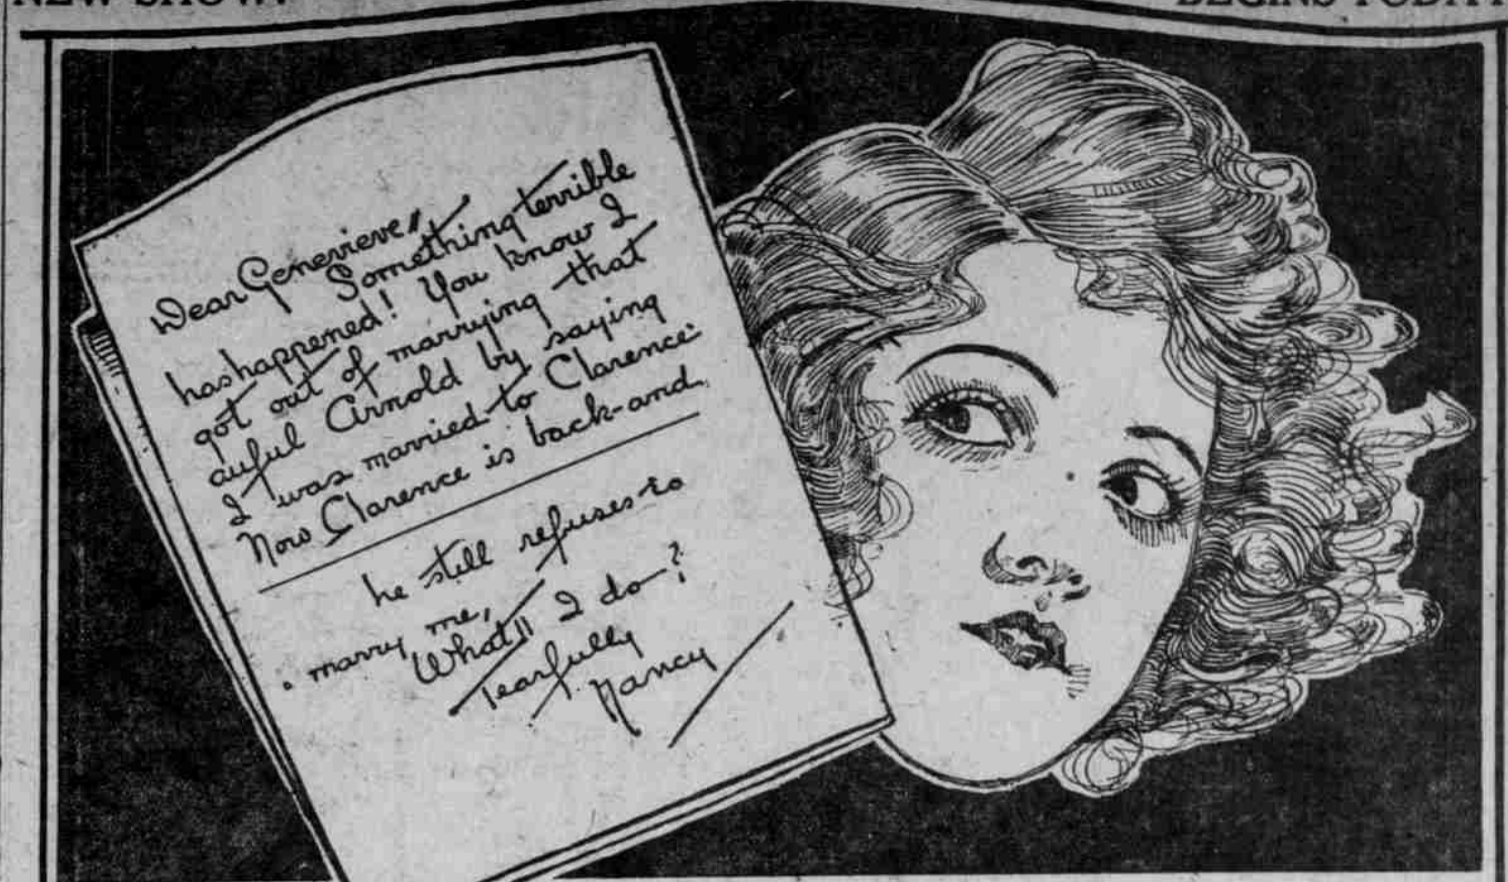 NEW SHOW!
BEGINS TODAY
Dear Genevieve,
Something terrible
has happened! You know I
got out of marrying that
awful Arnold by saying
I was married to Clarence
Now Clarence is back-and
he still refuses to
marry me,
What'll I do-?
Tearfully
Nancy